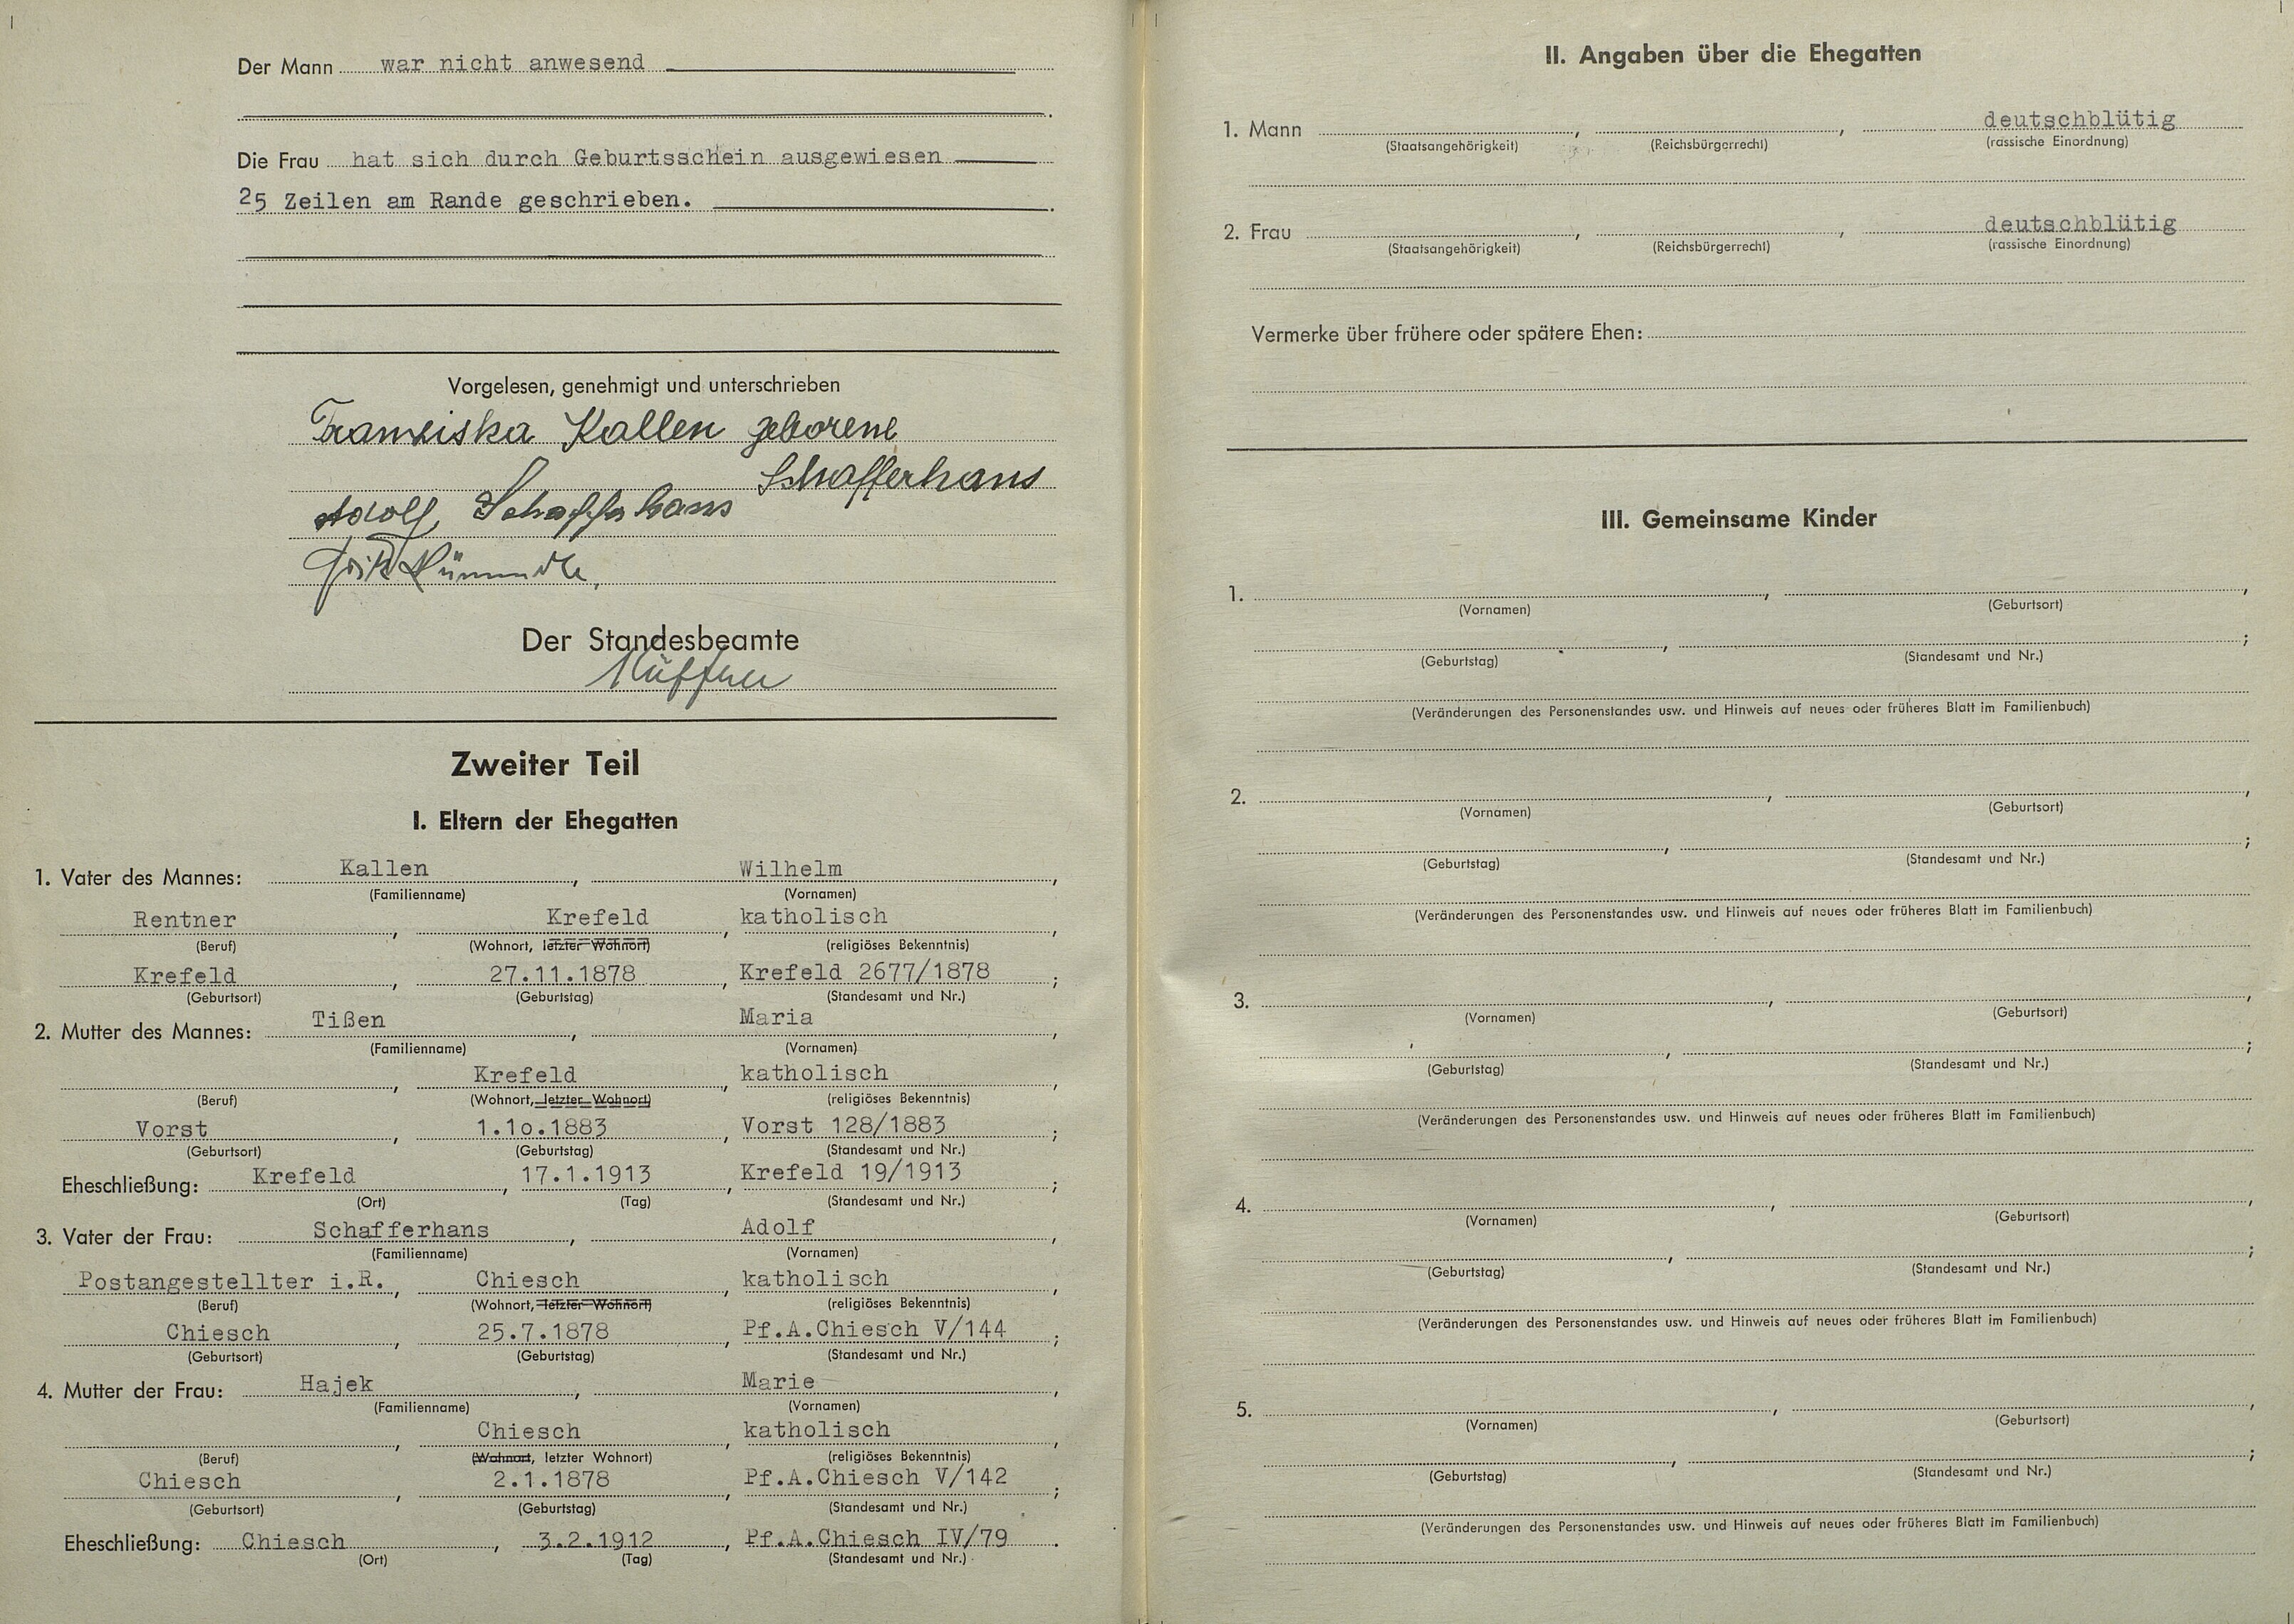 Der Mann war nicht anwesend
Die Frau hat sich durch Geburtsschein ausgewiesen
25 Zeilen am Rande geschrieben.
Vorgelesen, genehmigt und unterschrieben
Franziska Kallen geborene
Schafferhans
Adolf Schafferhans
Fritz
Der Standesbeamte
Zweiter Teil
I. Eltern der Ehegatten
1. Vater des Mannes: Kallen, Wilhelm,
(Familienname) (Vornamen)
Rentner, Krefeld, katholisch,
(Beruf) (Wohnort, letzter Wohnort) (religiöses Bekenntnis)
Krefeld, 27.11.1878, Krefeld 2677/1878;
(Geburtsort) (Geburtstag) (Standesamt und Nr.)
2. Mutter des Mannes: Tißen, Maria,
(Familienname) (Vornamen)
, Krefeld, katholisch,
(Beruf) (Wohnort, letzter Wohnort) (religiöses Bekenntnis)
Vorst, 1.10.1883, Vorst 128/1883;
(Geburtsort) (Geburtstag) (Standesamt und Nr.)
Eheschließung: Krefeld, 17.1.1913, Krefeld 19/1913;
(Ort) (Tag) (Standesamt und Nr.)
3. Vater der Frau: Schafferhans, Adolf,
(Familienname) (Vornamen)
Postangestellter i.R., Chiesch, katholisch,
(Beruf) (Wohnort, letzter Wohnort) (religiöses Bekenntnis)
Chiesch, 25.7.1878, Pf.A.Chiesch V/144;
(Geburtsort) (Geburtstag) (Standesamt und Nr.)
4. Mutter der Frau: Hajek, Marie,
(Familienname) (Vornamen)
, Chiesch, katholisch,
(Beruf) (Wohnort, letzter Wohnort) (religiöses Bekenntnis)
Chiesch, 2.1.1878, Pf.A.Chiesch V/142;
(Geburtsort) (Geburtstag) (Standesamt und Nr.)
Eheschließung: Chiesch, 3.2.1912, Pf.A.Chiesch IV/79.
(Ort) (Tag) (Standesamt und Nr.)
II. Angaben über die Ehegatten
1. Mann , , deutschblütig
(Staatsangehörigkeit) (Reichsbürgerrecht) (rassische Einordnung)
2. Frau , , deutschblütig
(Staatsangehörigkeit) (Reichsbürgerrecht) (rassische Einordnung)
Vermerke über frühere oder spätere Ehen:
III. Gemeinsame Kinder
1. , ,
(Vornamen) (Geburtsort)
, ;
(Geburtstag) (Standesamt und Nr.)
(Veränderungen des Personenstandes usw. und Hinweis auf neues oder früheres Blatt im Familienbuch)
2. , ,
(Vornamen) (Geburtsort)
, ;
(Geburtstag) (Standesamt und Nr.)
(Veränderungen des Personenstandes usw. und Hinweis auf neues oder früheres Blatt im Familienbuch)
3. , ,
(Vornamen) (Geburtsort)
, ;
(Geburtstag) (Standesamt und Nr.)
(Veränderungen des Personenstandes usw. und Hinweis auf neues oder früheres Blatt im Familienbuch)
4. , ,
(Vornamen) (Geburtsort)
, ;
(Geburtstag) (Standesamt und Nr.)
(Veränderungen des Personenstandes usw. und Hinweis auf neues oder früheres Blatt im Familienbuch)
5. , ,
(Vornamen) (Geburtsort)
, ;
(Geburtstag) (Standesamt und Nr.)
(Veränderungen des Personenstandes usw. und Hinweis auf neues oder früheres Blatt im Familienbuch)